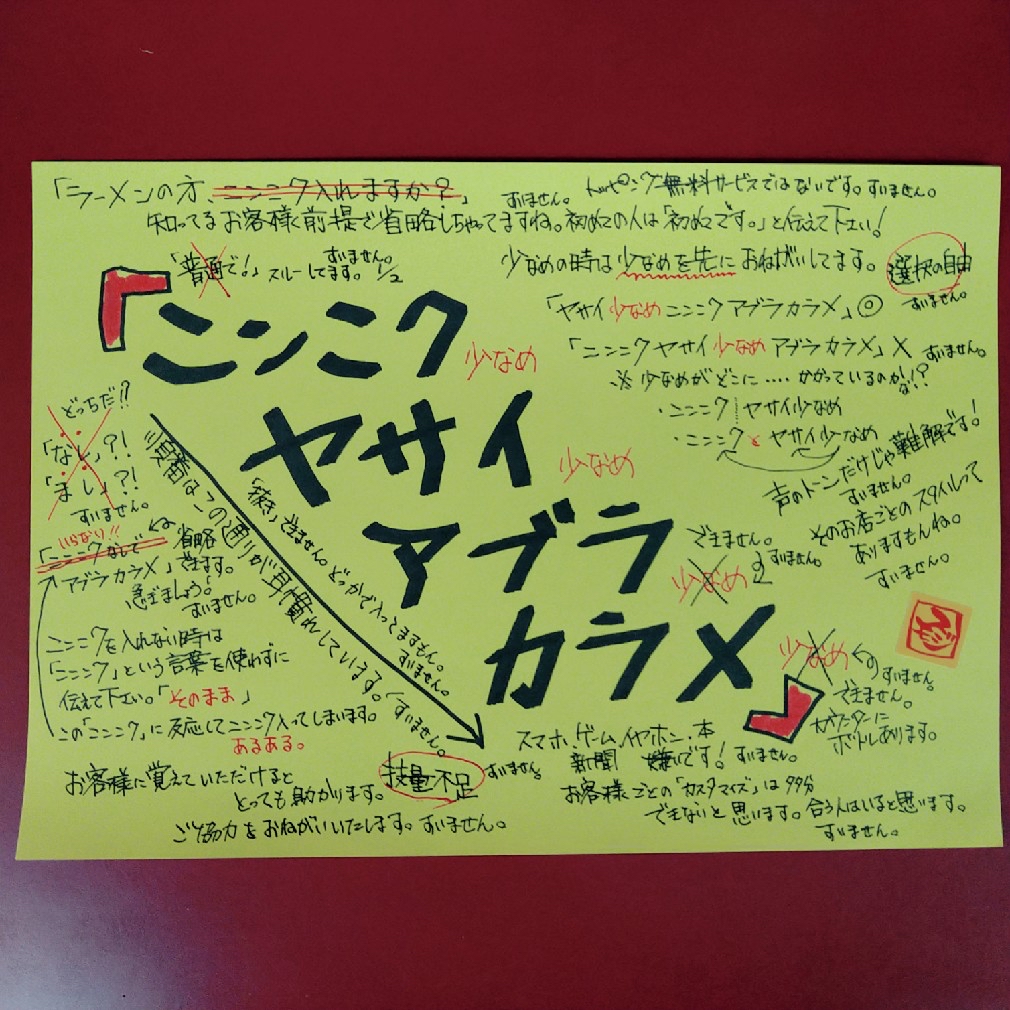 「ラーメンの方、ニンニク入れますか?」 すいません。
トッピング無料サービスではないです。すいません。
知ってるお客様前提で省略しちゃってますね。初めての人は「初めてです。」と伝えて下さい!
「普通で!」スルーしてます。1/2 すいません。
少なめの時は少なめを先におねがいしてます。
選択の自由
すいません。
「ヤサイ少なめニンニクアブラカラメ」◎
「ニンニクヤサイ少なめアブラカラメ」× すいません。
※少なめがどこに‥‥かかっているのかな!?
・ニンニク ヤサイ少なめ
・ニンニクとヤサイ少なめ
声のトーンだけじゃ難解です!
すいません。
そのお店ごとのスタイルって
ありますもんね。
すいません。
「ニンニク 少なめ
ヤサイ 少なめ
アブラ 少なめ
カラメ」 少なめ
できません。
すいません。
すいません。
できません。
カウンターに
ボトルあります。
順番はこの通りが耳慣れしています。「すいません。
「抜き」できません。どっかで入っとりますもん。
すいません。
どっちだ!!
「なし」?!
「まし」?!
すいません。
いらない!!
「ニンニクなしで 省略
アブラカラメ」できます。
急ぎましょう!
すいません。
ニンニクを入れない時は
「ニンニク」という言葉を使わずに
伝えて下さい。「そのまま」
この「ニンニク」に反応してニンニク入ってしまいます。
あるある。
お客様に覚えていただけると
とっても助かります。
技量不足
すいません。
ご協力をおねがいいたします。すいません。
スマホ、ゲーム、イヤホン、本
新聞 嫌いです! すいません。
お客様ごとの「カスタマイズ」は99%
できないと思います。合う人はいると思います。
すいません。